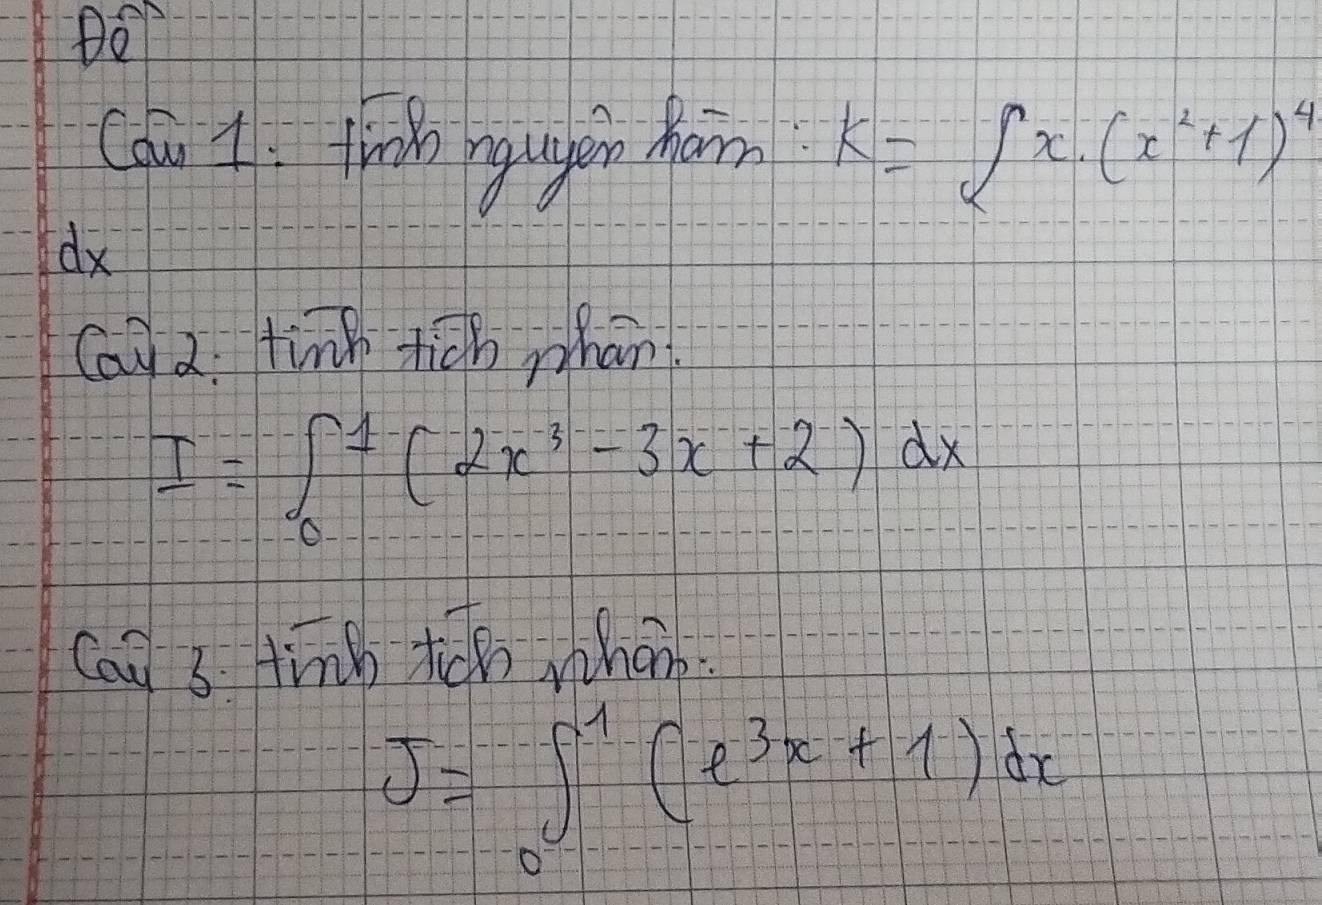 Đề
Câu 1: tính nguyên hàm: K = ∫ x.(x²+1)⁴
dx
Câu 2: tính tích phân:
I = ∫₀¹ (2x³ - 3x + 2) dx
Câu 3: tính tích phân:
J = ∫₀¹ (e³ˣ + 1) dx